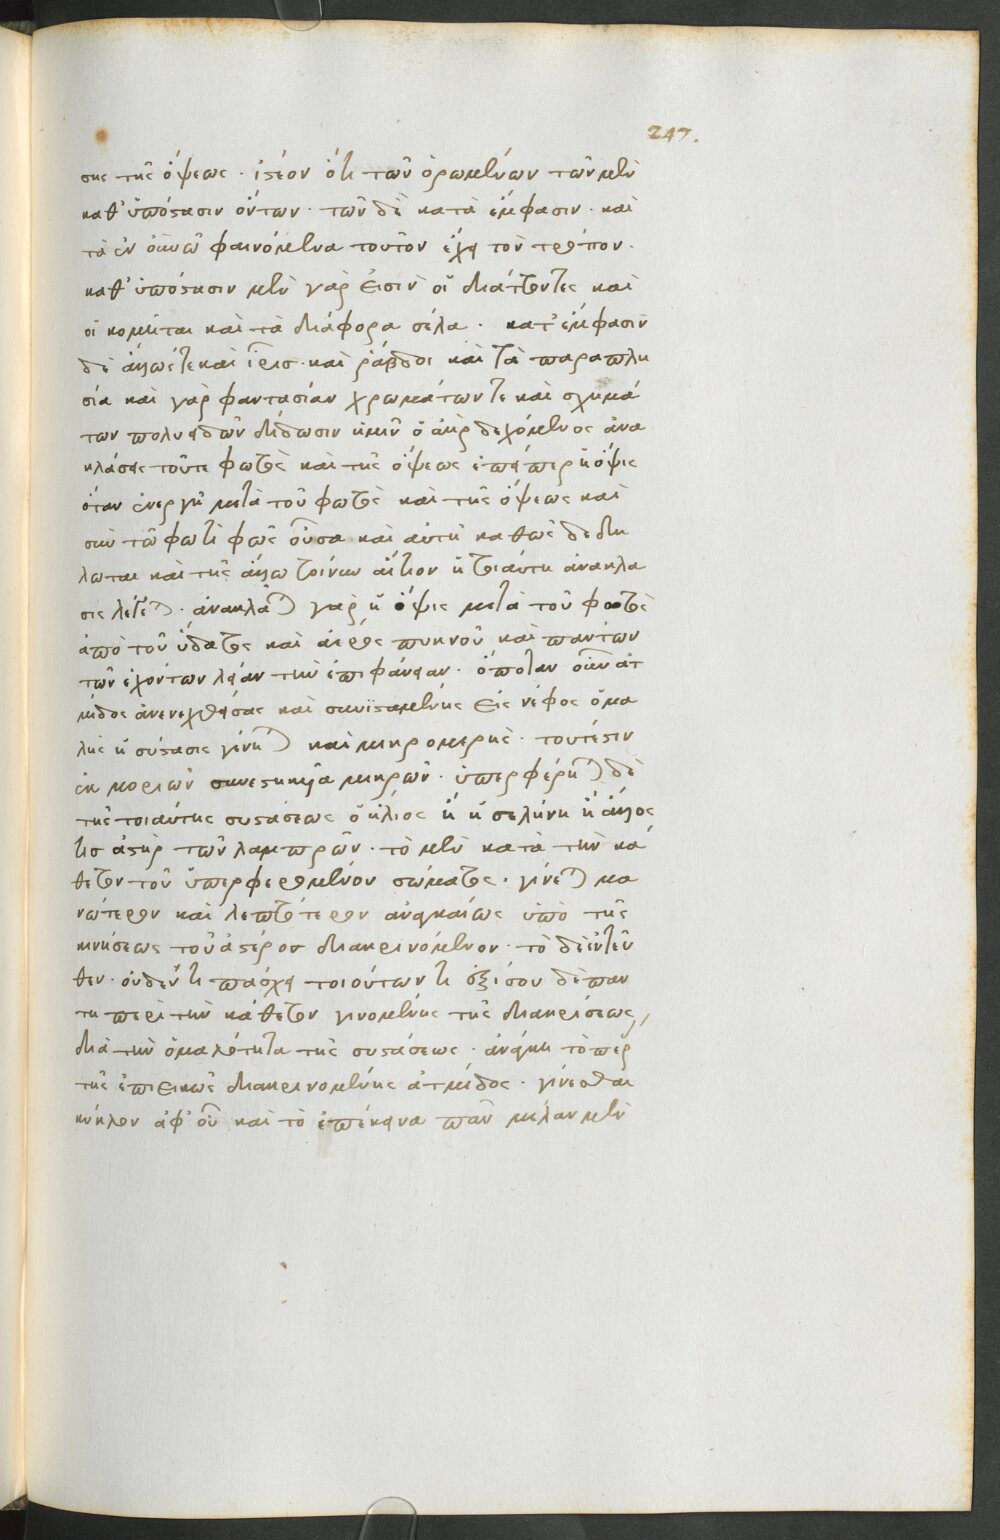 247.
σης τῆς ὄψεως · ἰστέον ὅτι τῶν ὁρωμένων τῶν μὲν
καθ' ὑπόστασιν ὄντων · τῶν δὲ κατὰ ἔμφασιν · καὶ
τὰ ἐν φαινόμενα τοῦτον ἔχει τὸν τρόπον ·
καθ' ὑπόστασιν μὲν γάρ εἰσιν οἱ διάττοντες καὶ
οἱ κομῆται καὶ τὰ διάφορα σέλα · κατ' ἔμφασιν
δὲ ἅλως τε καὶ ἶρις · καὶ ῥάβδοι καὶ τὰ παραπλη
σία καὶ γὰρ φαντασίαν χρωμάτων τε καὶ σχημά
των πολυειδῶν δίδωσιν ἡμῖν ὁ ἀὴρ δεχόμενος ἀνα
κλάσεις τοῦτε φωτὸς καὶ τῆς ὄψεως ἐπείπερ ἡ ὄψις
ὅταν ἐνεργῆ μετὰ τοῦ φωτὸς καὶ τῆς ὄψεως καὶ
σὺν τῶ φωτὶ φῶς οὖσα καὶ αὐτὴ καθὼς δεδη
λωται καὶ τῆς ἅλω τοίνυν αἴτιον ἡ τοιαύτη ἀνακλα
σις λέγεται · ἀνακλᾶται γὰρ ἡ ὄψις μετὰ τοῦ φωτὸς
ἀπὸ τοῦ ὕδατος καὶ ἀέρος πυκνοῦ καὶ πάντων
τῶν ἐχόντων λείαν τὴν ἐπιφάνειαν · ὁπόταν οὖν ἀτ
μίδος ἀνενεχθείσας καὶ συνισταμένης εἰς νέφος ὁμα
λὴς ἡ σύστασις γένηται καὶ μικρομερής · τουτέστιν
ἐκ μορίων συνεστηκυῖα μικρῶν · ὑπερφέρηται δὲ
τῆς τοιαύτης συστάσεως ὁ ἥλιος ἢ ἡ σελήνη ἢ ἄλλος
τις ἀστὴρ τῶν λαμπρῶν · τὸ μὲν κατὰ τὴν κά
θετον τοῦ ὑπερφερομένου σώματος · γίνεται μα
νώτερον καὶ λεπτότερον ἀναγκαίως ὑπὸ τῆς
κινήσεως τοῦ ἀστέρος διακρινόμενον · τὸ δὲ ἐντεῦ
θεν · οὐδέν τι πάσχει τοιοῦτον τι ἐξίσου δὲ παν
τη περὶ τὴν κάθετον γινομένης τῆς διακρίσεως,
διὰ τὴν ὁμαλότητα τῆς συστάσεως · ἀνάγκη τὸ περ
τῆς ἐπιεικῶς διακρινομένης ἀτμίδος · γίνεσθαι
κύκλον ἀφ' οὗ καὶ τὸ ἐπέκεινα πᾶν μέλαν μὲν